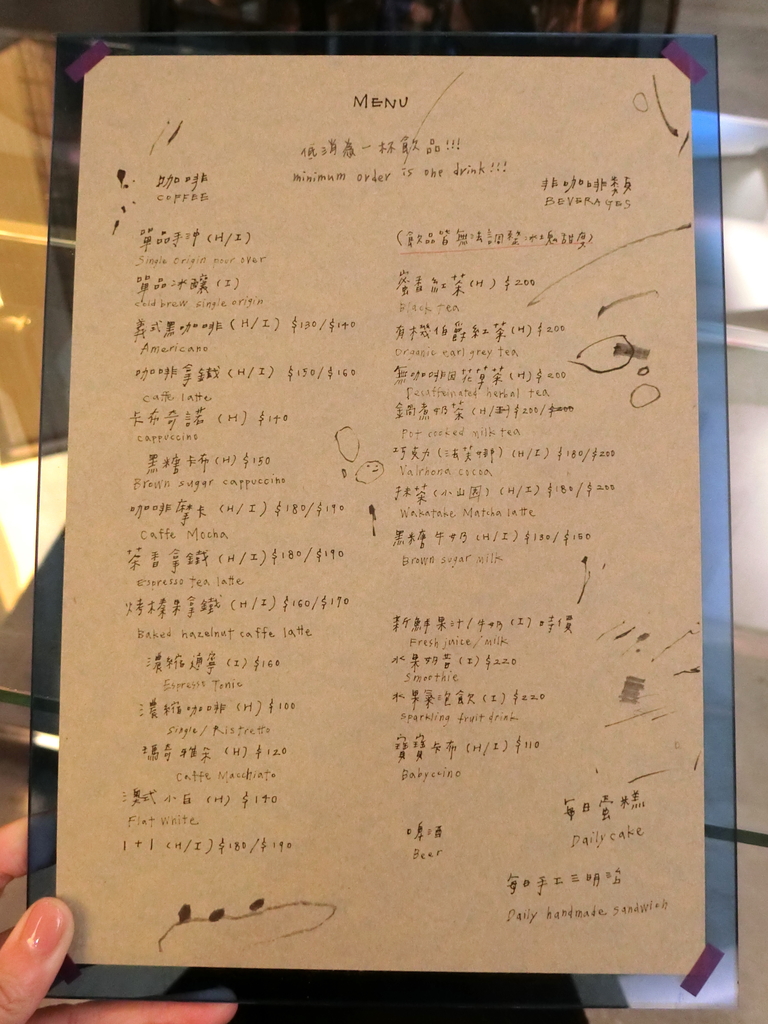 MENU
低消為一杯飲品!!!
minimum order is one drink!!!
咖啡
COFFEE
單品手沖 (H/I)
Single origin pour over
單品冰釀 (I)
cold brew single origin
義式黑咖啡 (H/I) $130/$140
Americano
咖啡拿鐵 (H/I) $150/$160
caffe latte
卡布奇諾 (H) $140
cappuccino
黑糖卡布 (H) $150
Brown sugar cappuccino
咖啡摩卡 (H/I) $180/$190
Caffe Mocha
茶香拿鐵 (H/I) $180/$190
Espresso tea latte
烤榛果拿鐵 (H/I) $160/$170
Baked hazelnut caffe latte
濃縮通寧 (I) $160
Espresso Tonic
濃縮咖啡 (H) $100
Single/Ristretto
瑪奇雅朵 (H) $120
Caffe Macchiato
澳式小白 (H) $140
Flat White
1+1 (H/I) $180/$190
非咖啡類
BEVERAGES
(飲品皆無法調整冰塊甜度)
蜜香紅茶 (H) $200
Black tea
有機伯爵紅茶 (H) $200
Organic earl grey tea
無咖啡因花草茶 (H) $200
Decaffeinated herbal tea
鍋煮奶茶 (H/I) $200/$200
Pot cooked milk tea
巧克力 (法芙娜) (H/I) $180/$200
Valrhona cocoa
抹茶 (小山園) (H/I) $180/$200
Wakatake Matcha latte
黑糖牛奶 (H/I) $130/$150
Brown sugar milk
新鮮果汁/牛奶 (I) 時價
Fresh juice/milk
水果奶昔 (I) $220
Smoothie
水果氣泡飲 (I) $220
Sparkling fruit drink
寶寶卡布 (H/I) $110
Babyccino
啤酒
Beer
每日蛋糕
Daily cake
每日手工三明治
Daily handmade sandwich